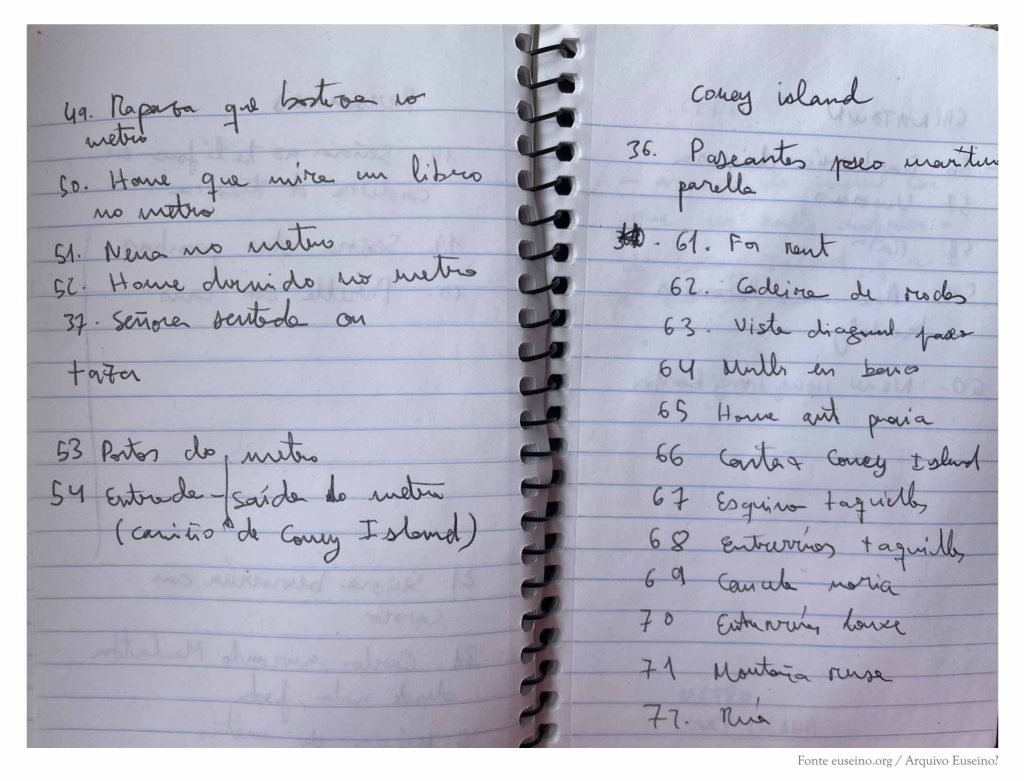 49. Rapaza que bosteza no
metro
50. Home que mira un libro
no metro
51. Nena no metro
52. Home durmido no metro
37. Señora sentada con
taza
53 Portas do metro
54 Entrada - saída do metro
(camiño de Coney Island)
Coney island
36. Paseantes paseo marítimo
parella
61. For rent
62. Cadeira de rodas
63. Vista diagonal paseo
64 en banco
65 Home praia
66 Carta Coney Island
67 Esquina taquillas
68 taquillas
69 Cancela noria
70
71 Montaña rusa
72. Rúa
Fonte euseino.org / Arquivo Euseino?